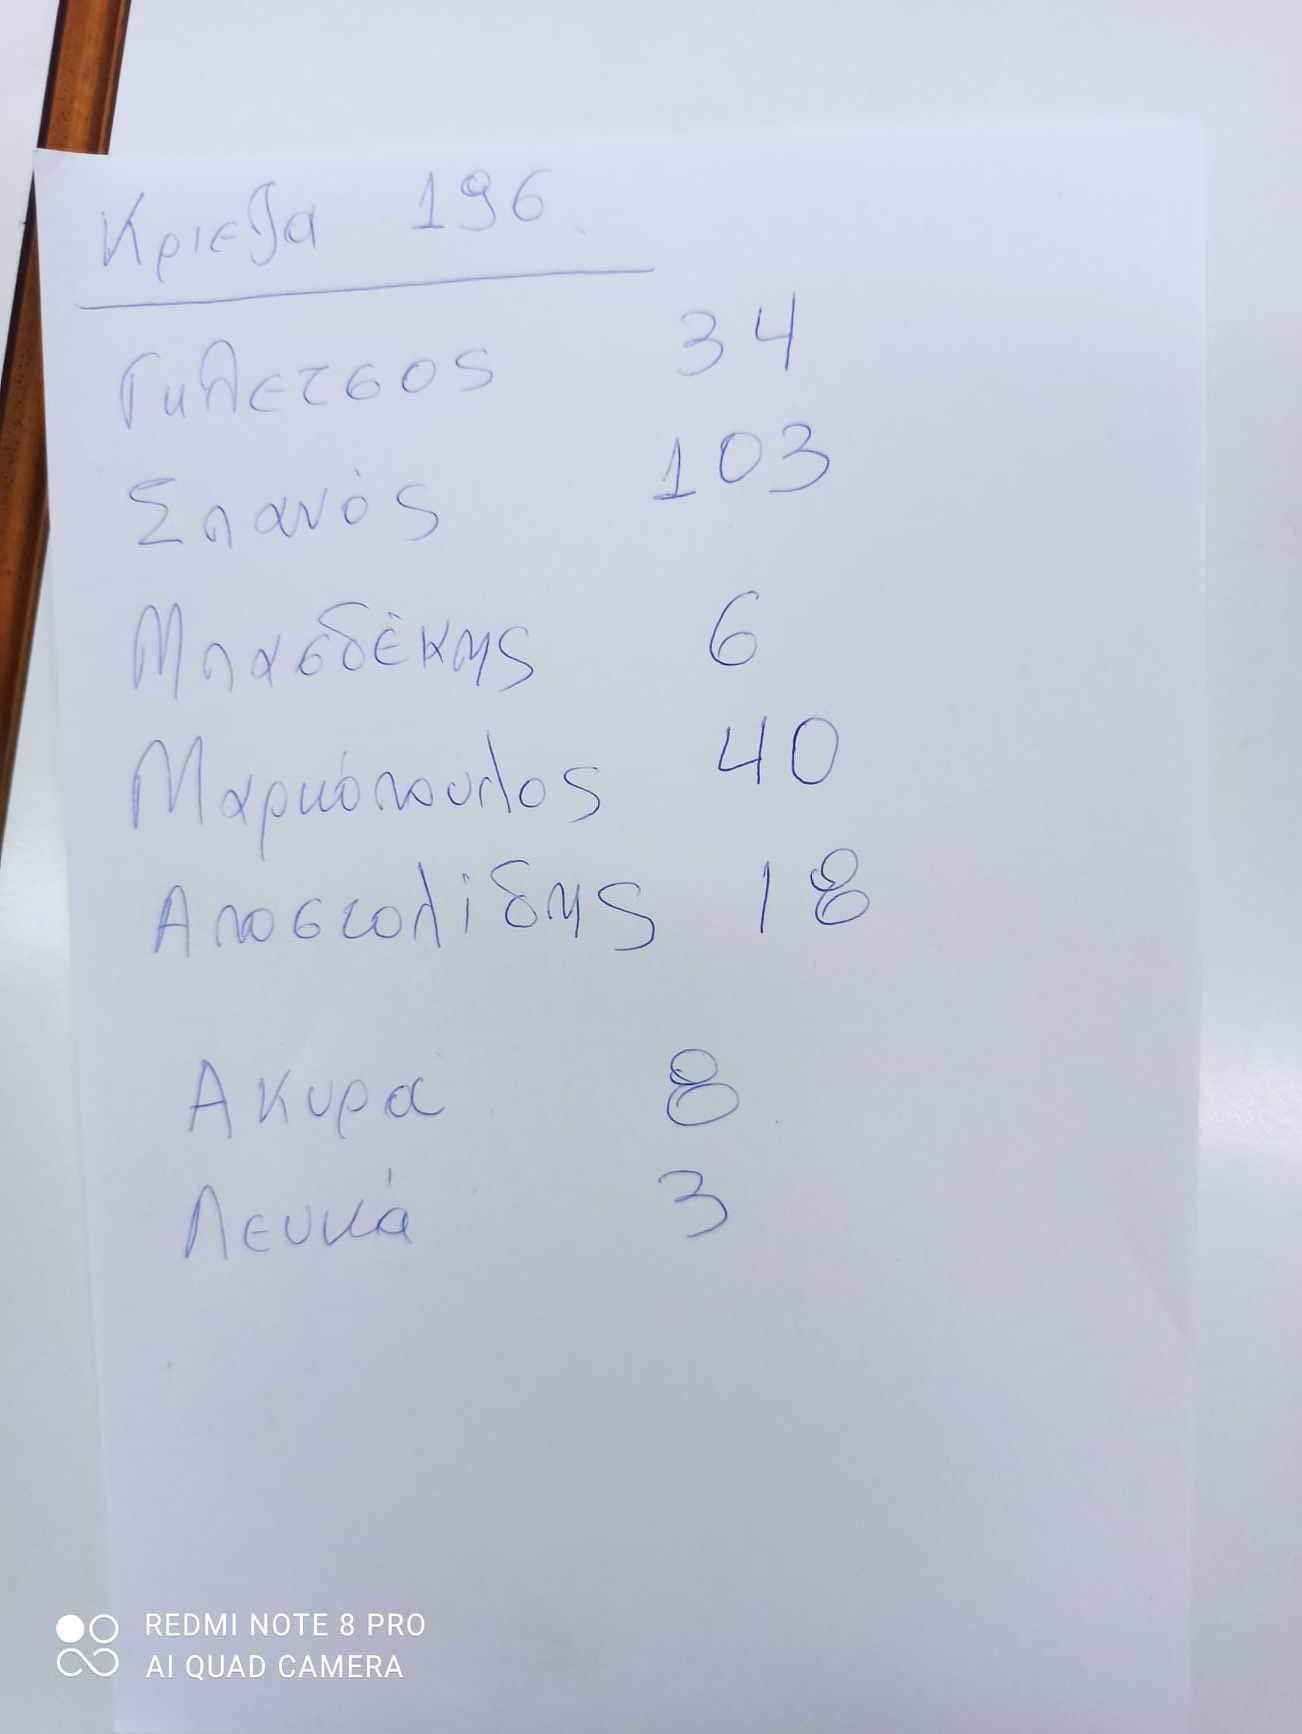 Κριεζα 196
Γκλετσος 34
Σπανός 103
Μπασδέκης 6
Μαρκόπουλος 40
Αποστολίδης 18
Ακυρα 8
Λευκά 3
REDMI NOTE 8 PRO
AI QUAD CAMERA